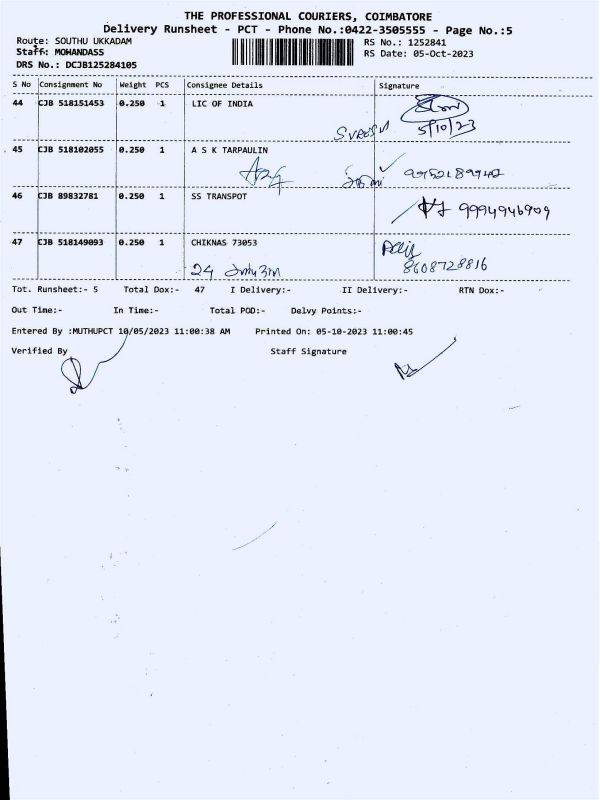 THE PROFESSIONAL COURIERS, COIMBATORE
Delivery Runsheet - PCT - Phone No.:0422-3505555 - Page No.:5
Route: SOUTHU UKKADAM
RS No.: 1252841
Staff: MOHANDASS
RS Date: 05-Oct-2023
DRS No.: DCJB125284105
S No Consignment No Weight PCS Consignee Details Signature
44 CJB 518151453 0.250 1 LIC OF INDIA
SURESH 5/10/23
45 CJB 518102055 0.250 1 A S K TARPAULIN
46 CJB 89832781 0.250 1 SS TRANSPOT
9994946909
47 CJB 518149093 0.250 1 CHIKNAS 73053
24
8608728816
Tot. Runsheet:- 5 Total Dox:- 47 I Delivery:- II Delivery:- RTN Dox:-
Out Time:- In Time:- Total POD:- Delvy Points:-
Entered By :MUTHUPCT 10/05/2023 11:00:38 AM Printed On: 05-10-2023 11:00:45
Verified By Staff Signature